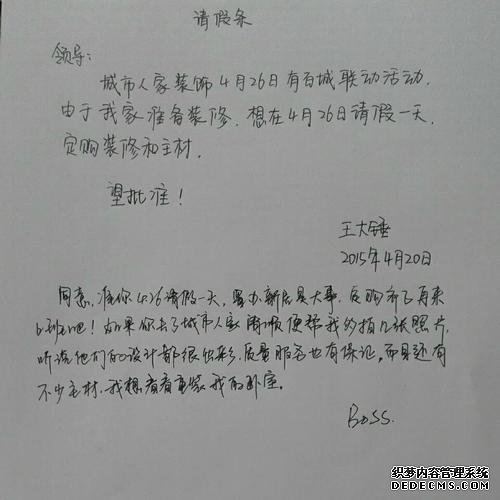 请假条
领导:
城市人家装饰4月26日有百城联动活动.
由于我家准备装修.想在4月26日请假一天,
定购装修和主材.
望批准!
王大锤
2015年4月20日
同意,准你4.26请假一天,置办新房是大事.定购齐了再来
上班吧!如果你去了城市人家 顺便帮我约拍几张照片,
听说他们的设计都很出彩,质量服务也有保证,而且还有
不少主材.我想看看重装我的卧室。
BOSS.
织梦内容管理系统
DEDECMS.COM